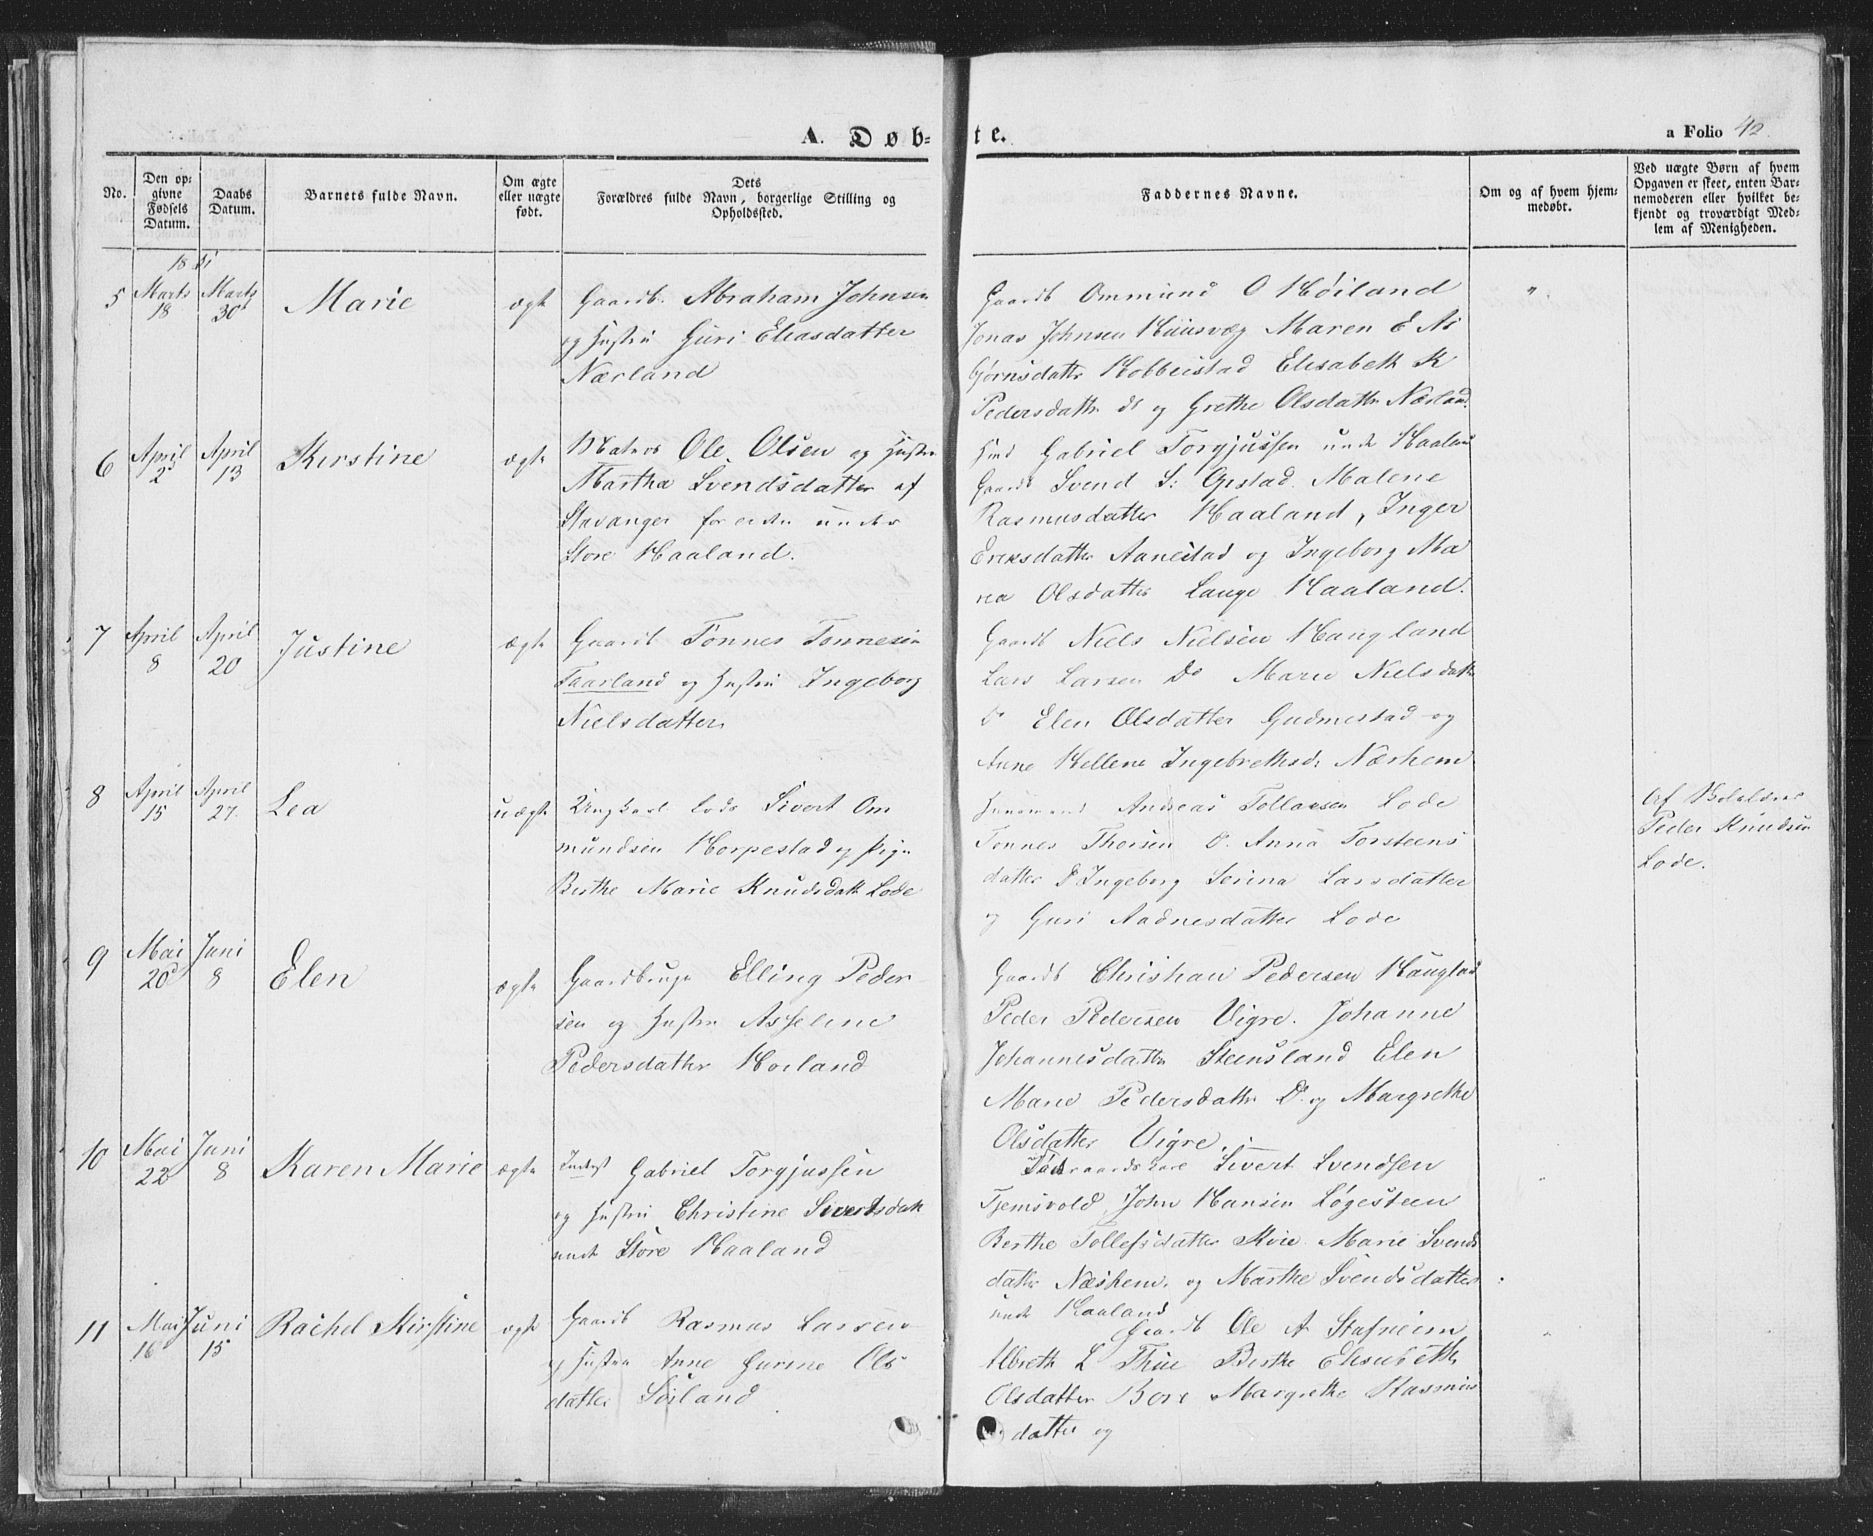 A. Døb=
te.
a Folio 42.
No.
Den op=
givne
Fødsels
Datum.
Daabs
Datum.
Barnets fulde Navn.
Om ægte
eller uægte
født.
Dets
Forældres fulde Navn, borgerlige Stilling og
Opholdssted.
Faddernes Navne.
Om og af hvem hjem=
medøbt.
Ved uægte Børn af hvem
Opgaven er skeet, enten Bar=
nemoderen eller hvilket be=
kjendt og troværdigt Med=
lem af Menigheden.
18 51
5 Marts 18 Marts 30 Marie ægte
Gaardb. Abraham Johnsen
og Hustru Guri Eliasdatter
Nærland
Gaardb Ommund O Høiland
Jonas Johnsen Huusvæg Maren E As
bjørnsdattr Hobbeistad Elisabeth K
Pedersdattr ds og Grethe Olsdattr Nærland.
"
6 April 2 April 13 Kirstine ægte
Matros Ole Olsen og Hustru
Martha Svendsdatter af
Stavanger for under
Store Haaland.
Gabriel Torgjussen under Haaland
Gaardb Svend S: Opstad. Malene
Rasmusdatter Haaland, Inger
Eriksdatter Aanestad og Ingeborg Ma
ria Olsdatter Lauge Haaland.
7 April 8 April 20 Justine ægte
Gaardb Tonnes Tonnesen
Taarland og Hustru Ingeborg
Nielsdatter
Gaardb Niels Nielsen Haugland
Lars Larsen Do Marie Nielsdattr
Do Elen Olsdatter Gudmestad og
Anne Hellene Ingebrethsdr Nærhem
8 April 15 April 27. Lea uægte
Ungkarl Lods Sivert Om
mundsen Horpestad og Pige
Berthe Marie Knudsdattr Lode
Huusmand Andreas Tollaksen Lode
Tonnes Thorsen Do. Anna Torsteens
datter Do Ingeborg Serina Larsdatter
og Guri Aadnesdatter Lode
Af
Peder Knudsen
Lode.
9 Mai 20 Juni 8 Elen ægte
Gaardbruger Elling Peder
sen og Hustru Asseline
Pedersdatter Hoiland
Gaardb Christian Pedersen Haugstad
Peder Pedersen Vigre. Johanne
Johannesdattr Steensland Elen
Marie Pedersdattr Do. og Margrethe
Olsdatter Vigre.
10 Mai 22 Juni 8 Karen Marie ægte
Inderst Gabriel Torgjussen
og Hustru Christine Sivertsdatt
undr Store Haaland
Sivert Svendsen
Tjemsvold, John Hansen Løgesteen
Berthe Tollefsdatter Kvie Marie Svends
datter Næshem. og Marthe Svendsdatter
undr Haaland
11 Mai 16 Juni 15 Rachel Kirstine ægte
Gaardb Rasmus Larsen
og Hustru Anne Gurine Ols
datter Søiland
Gaardb Ole A Stafneim
Albreth L Thue Berthe Elisabeth
Olsdatter Bore Margrethe Rasmus
datter og